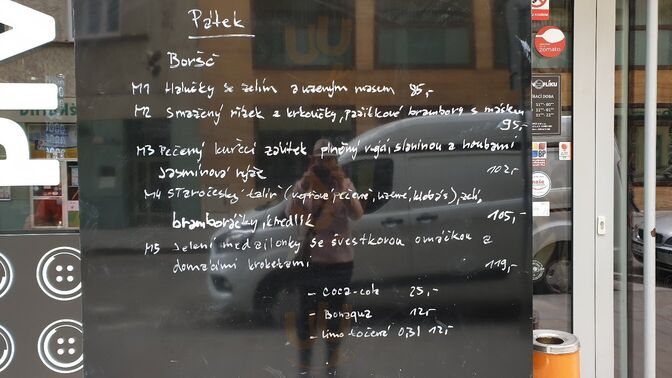 Pátek
Boršč
M1 Halušky se zelím a uzeným masem 95,-
M2 Smažený řízek z krkovičky, pažitkové brambory s máslem
95,-
M3 Pečený kuřecí závitek plněný vejci, slaninou a houbami
Jasmínová rýže 102,-
M4 Staročeský talíř (vepřové pečené, uzené, klobás), zelí,
bramboráčky, knedlík 105,-
M5 Jelení medailonky se švestkovou omáčkou a
domácími kroketami 119,-
- Coca-cola 25,-
- Bonaqua 12,-
- Limo točené 0,3l 12,-
zomato